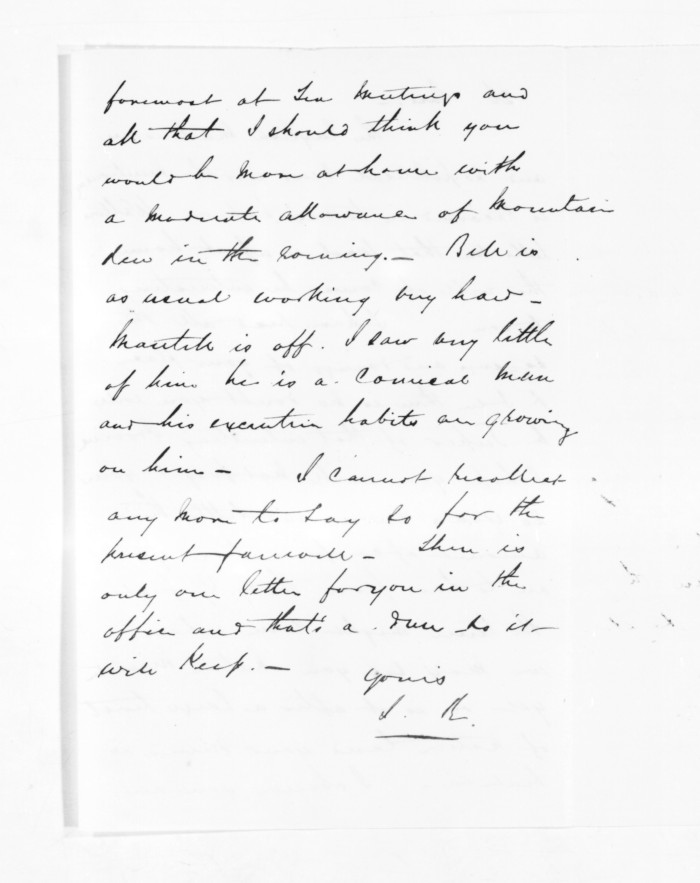 foremost at Tea Meetings and
all that I should think you
would be more at home with
a moderate allowance of Mountain
dew in the evening. — Bell is
as usual working very hard —
Mantell is off. I saw very little
of him he is a comical man
and his habits are growing
on him — I cannot recollect
any more to say so for the
present farewell — There is
only one letter for you in the
office and that's a dun so it
will keep. — yours
J. R.